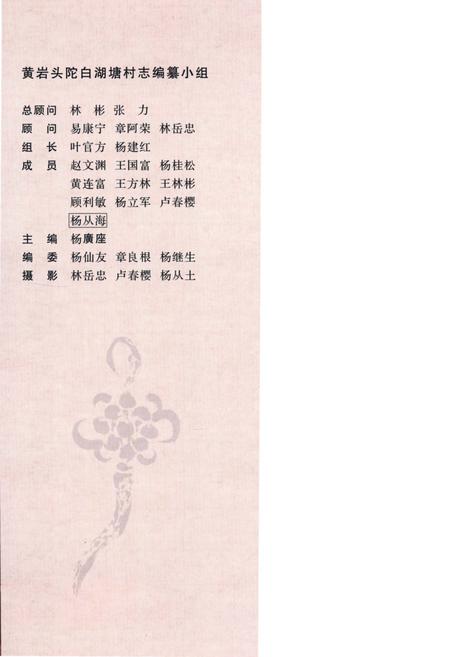 黄岩头陀白湖塘村志编纂小组
总顾问 林 彬 张 力
顾 问 易康宁 章阿荣 林岳忠
组 长 叶官方 杨建红
成 员 赵文渊 王国富 杨桂松
黄连富 王方林 王林彬
顾利敏 杨立军 卢春樱
杨从海
主 编 杨廣座
编 委 杨仙友 章良根 杨继生
摄 影 林岳忠 卢春樱 杨从土